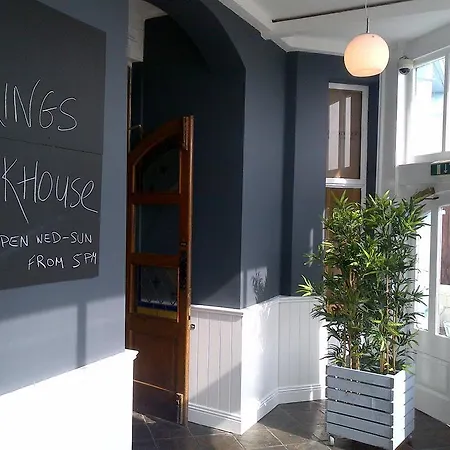 INGS
KHOUSE
PEN WED-SUN
FROM 5PM